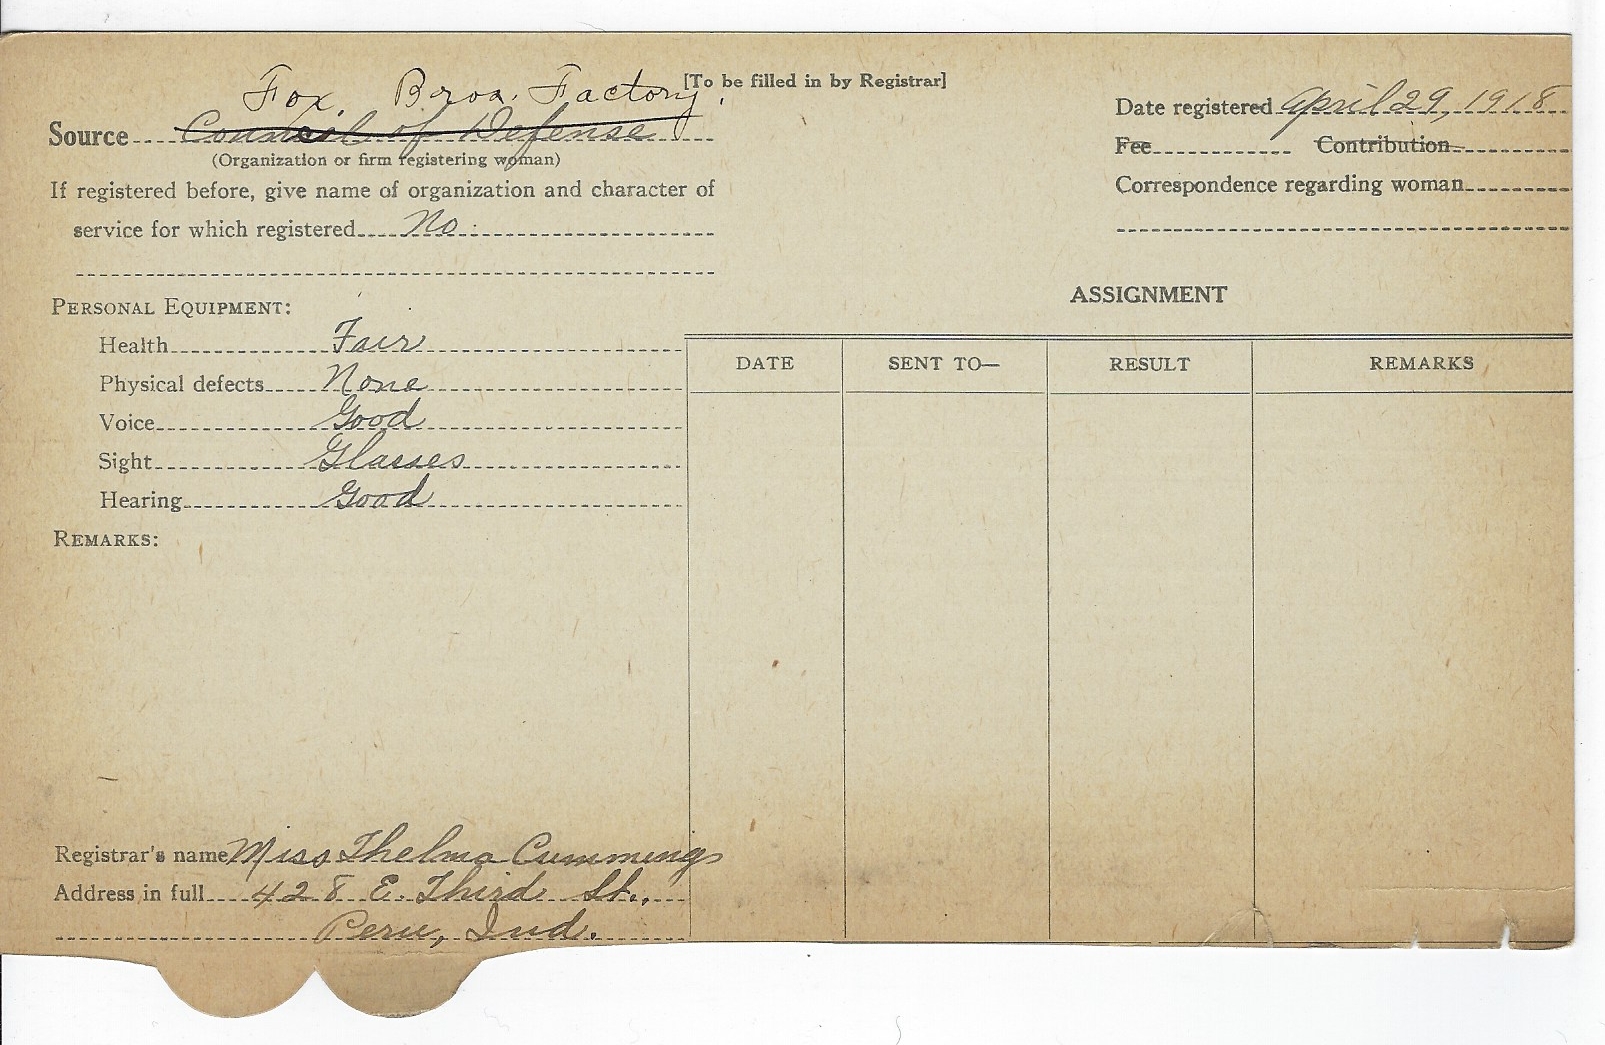 [To be filled in by Registrar]
Fox Bros. Factory.
Source Council of Defense
(Organization or firm registering woman)
If registered before, give name of organization and character of
service for which registered No.
Date registered April 29, 1918
Fee Contribution
Correspondence regarding woman
PERSONAL EQUIPMENT:
Health Fair
Physical defects None
Voice Good
Sight Glasses
Hearing Good
REMARKS:
ASSIGNMENT
DATE SENT TO— RESULT REMARKS
Registrar's name Miss Thelma Cummings
Address in full 428 E. Third St.,
Peru, Ind.